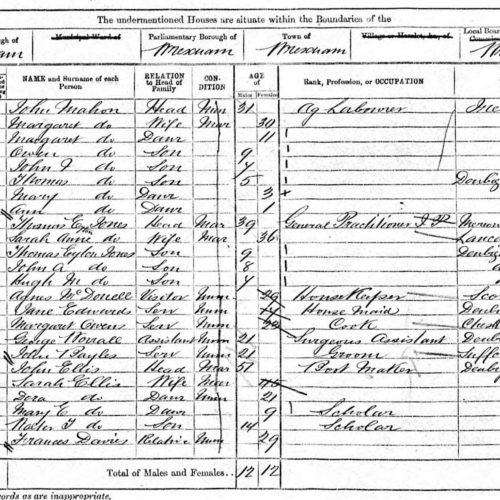 The undermentioned Houses are situate within the Boundaries of the
Municipal Ward of Parliamentary Borough of Town of Village or Hamlet, &c., of Local Board
Wrexham Wrexham
NAME and Surname of each Person RELATION to Head of Family CON- DITION AGE of Males Females Rank, Profession, or OCCUPATION
John Mahon Head Mar 31 Ag Labourer
Margaret do Wife Mar 30
Margaret do Daur 11
Owen do Son 9
John do Son 7
Thomas do Son 5 Denbig
Mary do Daur 3
Ann do Daur 1
Thomas E Jones Head Mar 39 General Practitioner
Sarah Anne do Wife Mar 36 Lanca
Thomas Eyton Jones Son 9 Denbig
John A. do Son 8
Hugh M do Son 4
Agnes McDonell Visitor Unm 29 HouseKeeper Sco
Jane Edwards Serv Unm House Maid Denb
Margaret Owens Serv Unm 22 Cook Chesh
George Assistant Unm 21 Surgeons Assistant Denb
John Sayles Serv Unm 21 Groom Suffo
John Ellis Head Mar 51 Boot Maker Denb
Sarah Ellis Wife Mar 45
Dora do Daur Unm 21
Mary E do Daur 9 Scholar
Walter J do Son 14 Scholar
Frances Davies Relative Unm 29
Total of Males and Females.. 12 12
ords as are inappropriate.